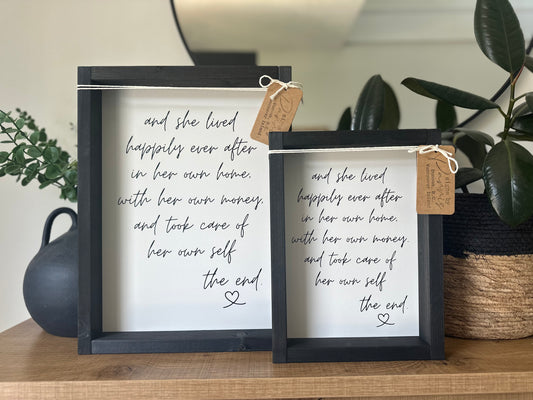 and she lived
happily ever after
in her own home.
with her own money.
and took care of
her own self
the end.
and she lived
happily ever after
in her own home.
with her own money.
and took care of
her own self
the end.